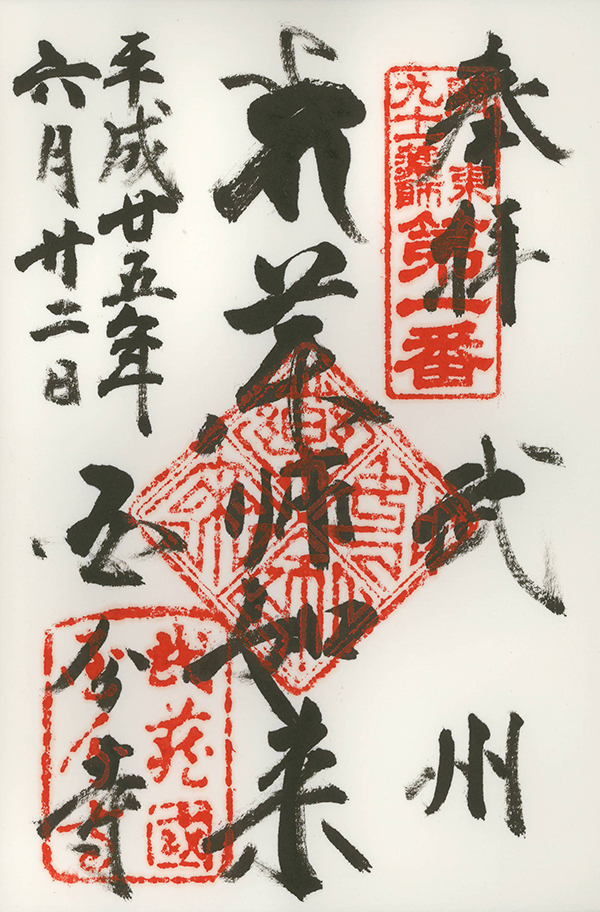 奉拝
武州
関東
九十一薬師
第一番
薬師如来
平成廿五年
六月廿二日
国分寺
武蔵國
国分寺